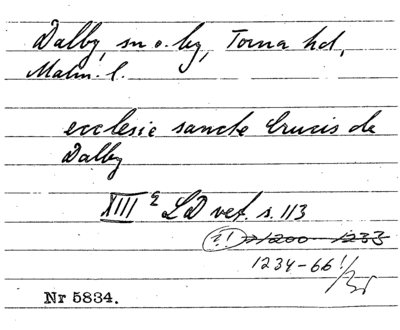 Dalby, sn o. by, Torna hd,
Malm. l.
ecclesie sancte Crucis de
Dalby
XIII e LD vet. s. 113
?! 1200-1233
1234-66!
Nr 5834.